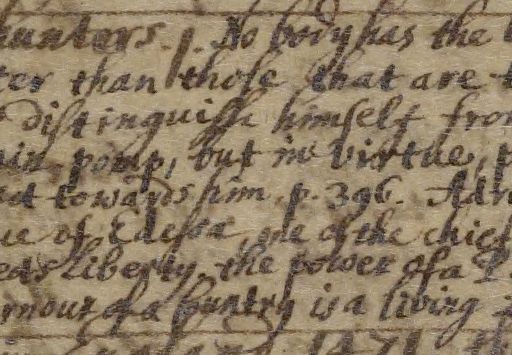 hunters. No body has the
ter than those that are
distinguish himself from
pomp, but in virtue,
towards him. p. 396.
ue of Edessa, one of the chief
liberty. the power of a
mour of a Country is a living